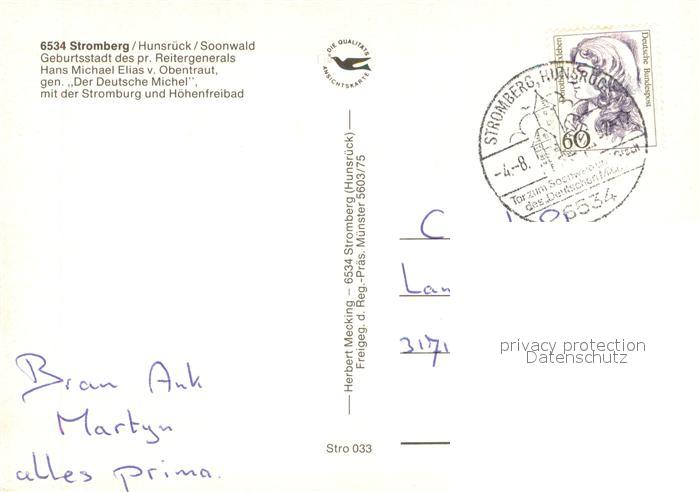 6534 Stromberg / Hunsrück / Soonwald
Geburtsstadt des pr. Reitergenerals
Hans Michael Elias v. Obentraut,
gen. ,,Der Deutsche Michel",
mit der Stromburg und Höhenfreibad
DIE QUALITÄTS
ANSICHTSKARTE
Herbert Mecking – 6534 Stromberg (Hunsrück)
Freigeg. d. Reg.-Präs. Münster 5603/75
Stro 033
Deutsche Bundespost
60
STROMBERG, HUNSRÜCK
-4.-8.
Tor zum Soonwald
des Deutschen
6534
C
Lan
3171
privacy protection
Datenschutz
Bran Ank
Martyn
alles prima.